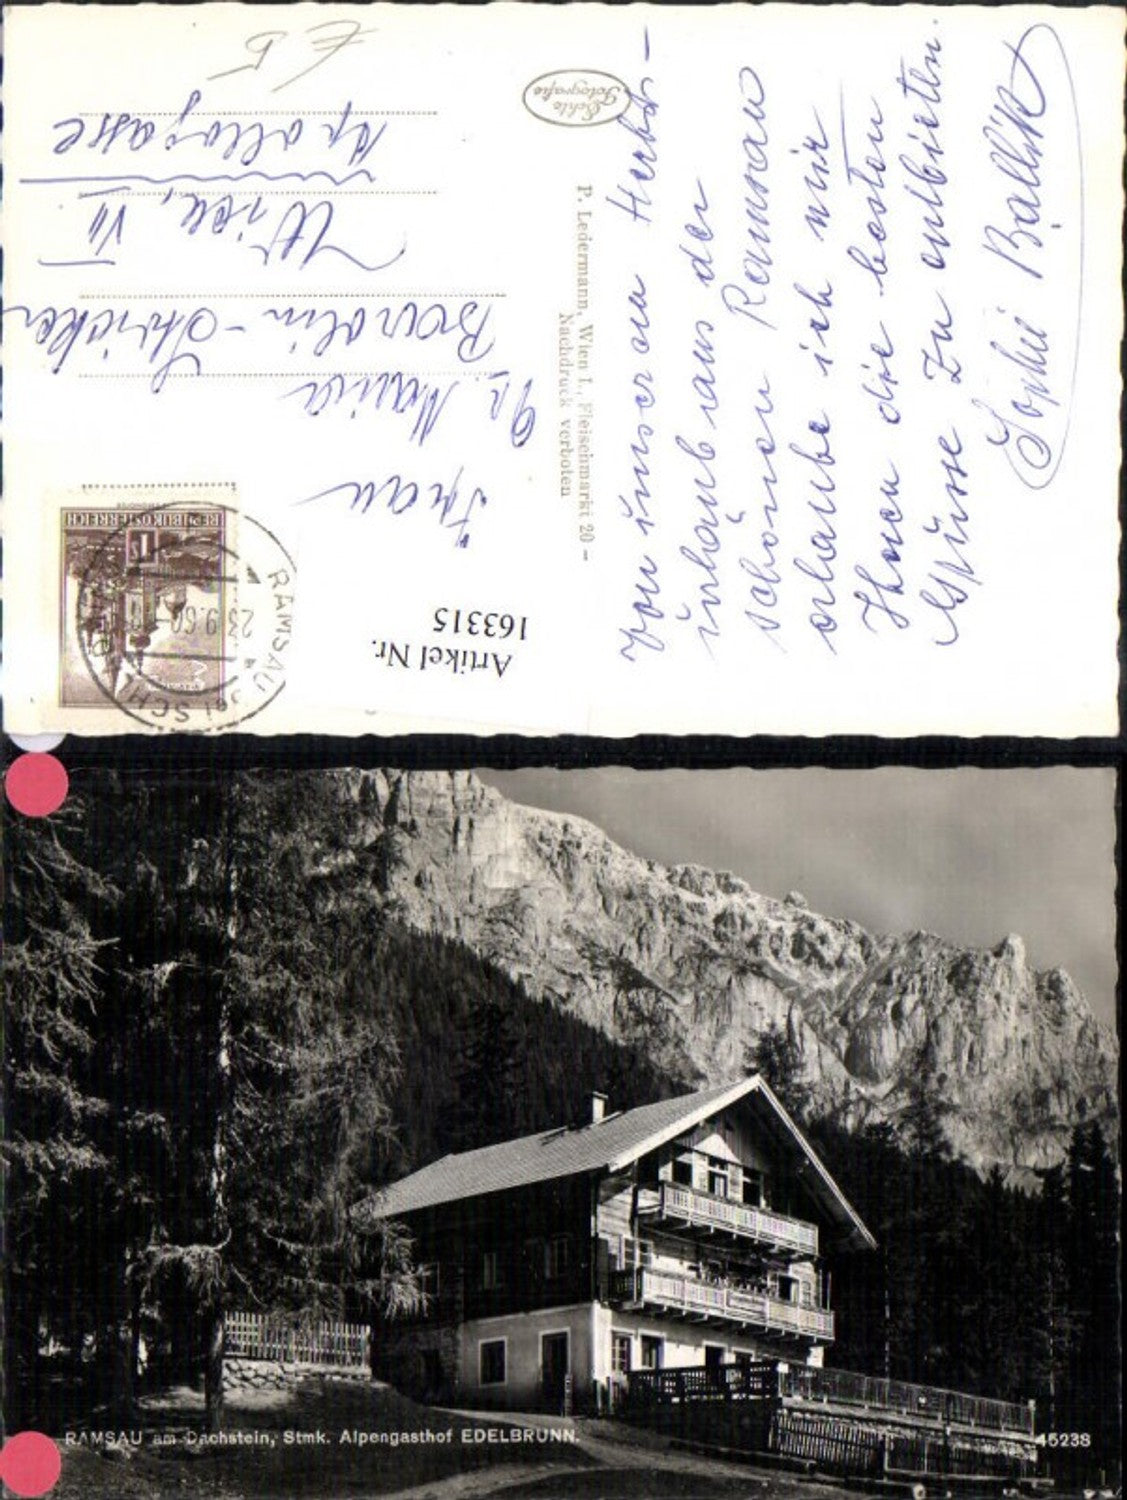 Von unserem Herbst-
urlaub aus der
schönen Ramsau
erlaube ich mir
Ihnen die besten
Grüsse zu entbieten.
Sophie
P. Ledermann, Wien I., Fleischmarkt 20 –
Nachdruck verboten
Echte
Fotografie
Frau
Dr. Maria
Wien, VII
Apollogasse
REPUBLIK ÖSTERREICH
1 S
RAMSAU
23.9.60
Artikel Nr.
163315
RAMSAU am Dachstein, Stmk. Alpengasthof EDELBRUNN.
45238